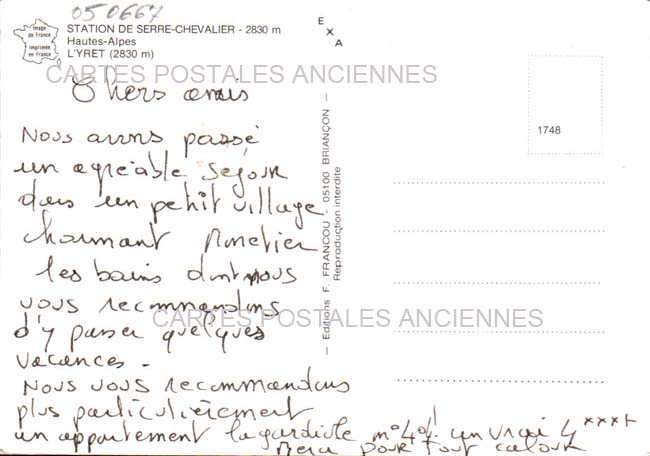 050667
Image
de France
Imprimée
en France
STATION DE SERRE-CHEVALIER - 2830 m
Hautes-Alpes
L'YRET (2830 m)
CARTES POSTALES ANCIENNES
Chers amis
Nous avons passé
un agréable séjour
dans un petit village
charmant Monetier
les bains dont nous
vous recommandons
d'y passer quelques
vacances.
Nous vous recommandons
plus particulièrement
un appartement la gardiole n°401 un vrai 4 ****
Merci pour tout
EXA
— Editions F. FRANCOU - 05100 BRIANÇON —
Reproduction interdite
1748
CARTES POSTALES ANCIENNES